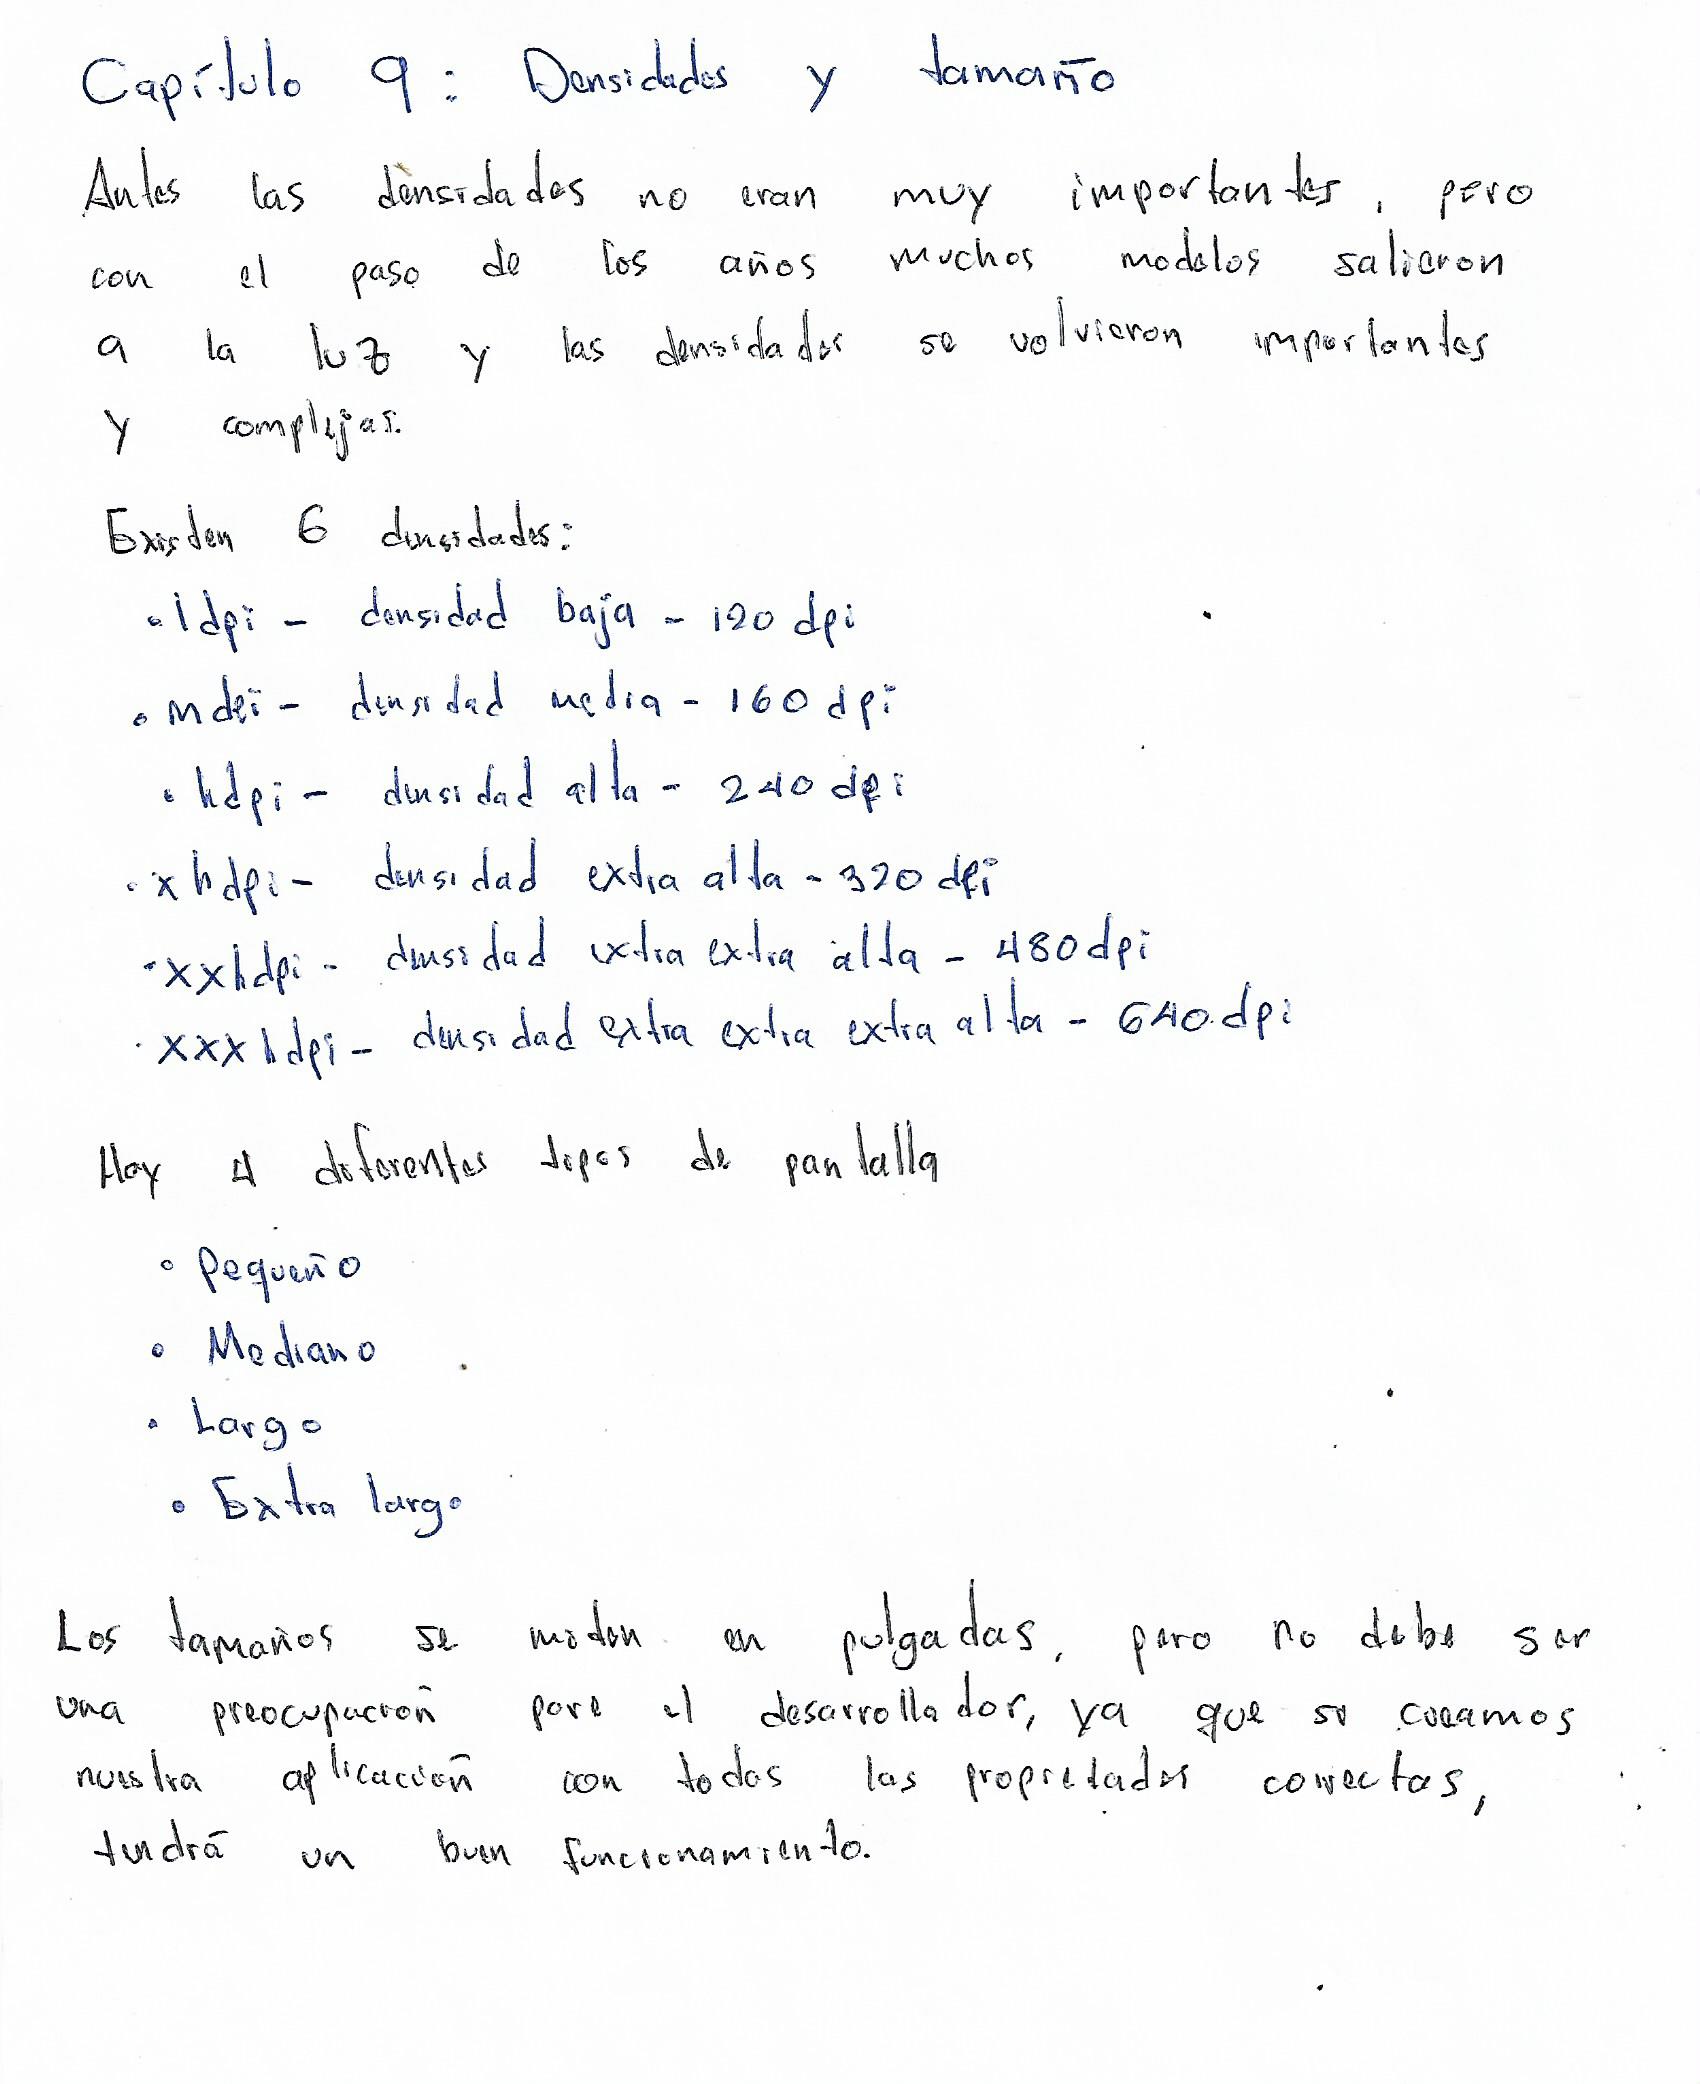 Capítulo 9: Densidades y tamaño
Antes las densidades no eran muy importantes, pero
con el paso de los años muchos modelos salieron
a la luz y las densidades se volvieron importantes
y complejas.
Existen 6 densidades:
• ldpi - densidad baja - 120 dpi
• mdpi - densidad media - 160 dpi
• hdpi - densidad alta - 240 dpi
• xhdpi - densidad extra alta - 320 dpi
• xxhdpi - densidad extra extra alta - 480 dpi
• xxxhdpi - densidad extra extra extra alta - 640 dpi
Hay 4 diferentes tipos de pantalla
• Pequeño
• Mediano
• Largo
• Extra largo
Los tamaños se miden en pulgadas, pero no debe ser
una preocupación para el desarrollador, ya que si creamos
nuestra aplicación con todas las propiedades correctas,
tendrá un buen funcionamiento.